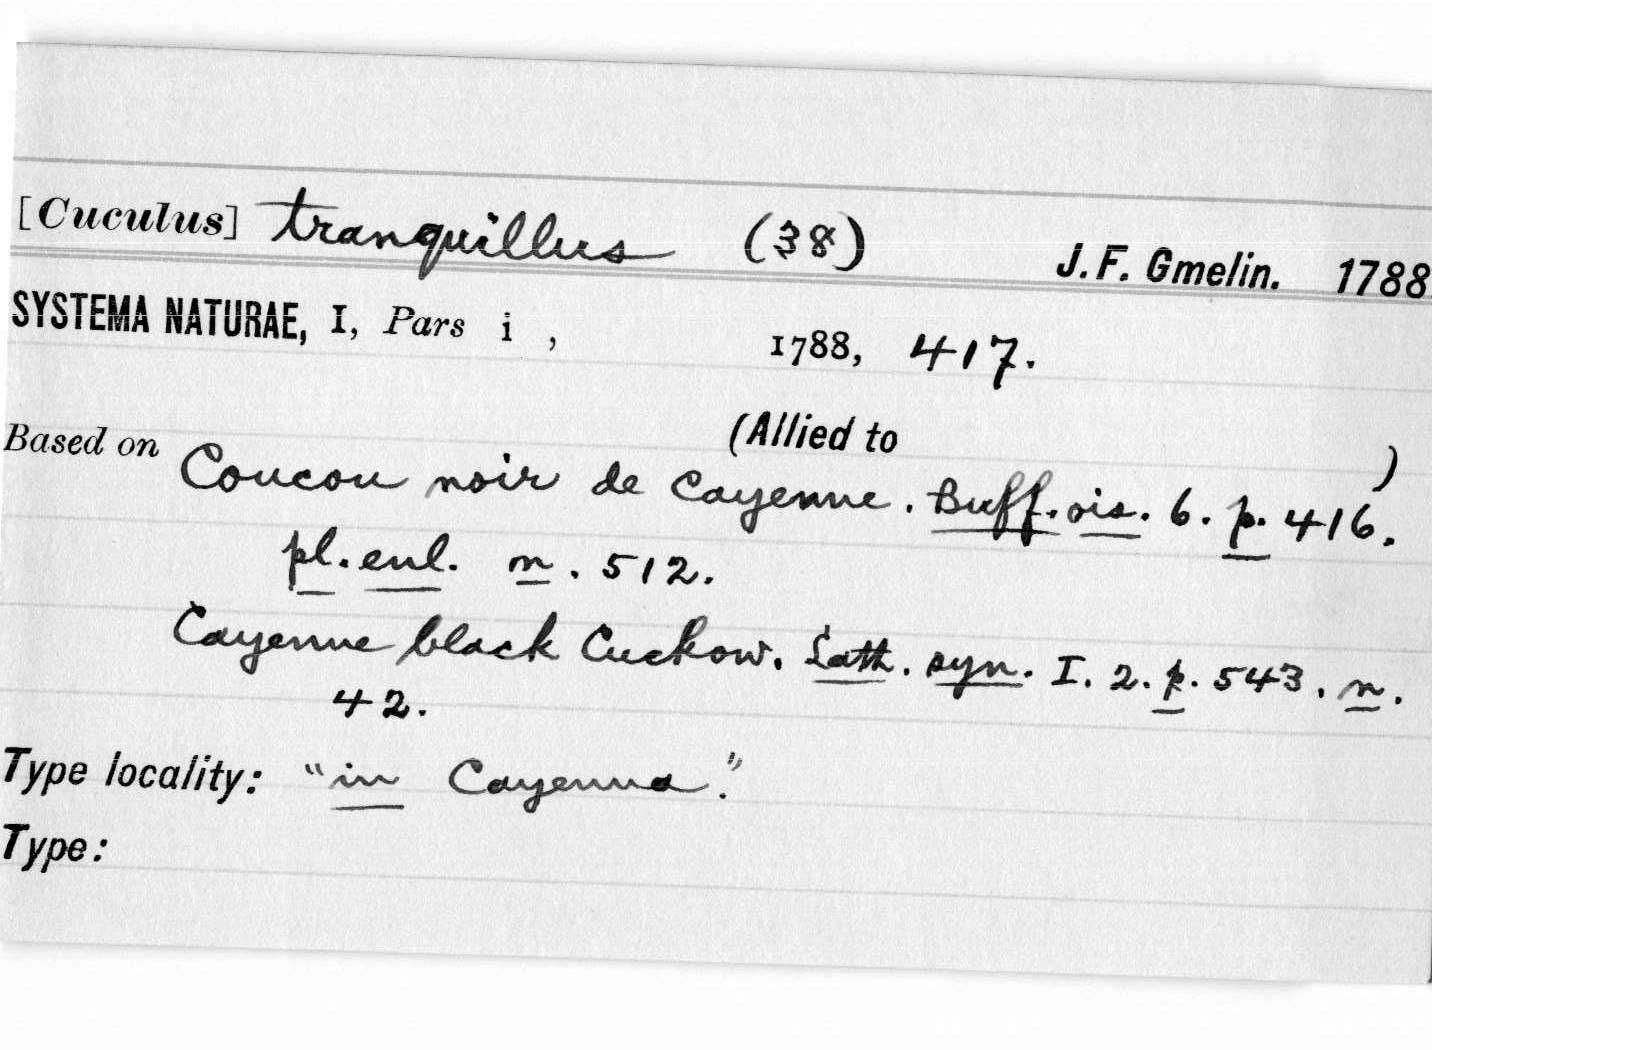 [Cuculus] tranquillus (38) J. F. Gmelin. 1788
SYSTEMA NATURAE, I, Pars i , 1788, 417.
Based on (Allied to )
Coucou noir de Cayenne. Buff. ois. 6. p. 416.
pl. enl. n. 512.
Cayenne black Cuckow. Lath. syn. I. 2. p. 543. n.
42.
Type locality: "in Cayenna."
Type: